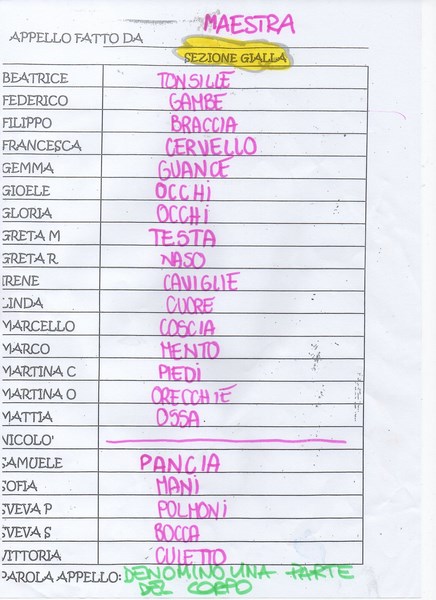 APPELLO FATTO DA MAESTRA
SEZIONE GIALLA
BEATRICE TONSILLE
FEDERICO GAMBE
FILIPPO BRACCIA
FRANCESCA CERVELLO
GEMMA GUANCE
GIOELE OCCHI
GLORIA OCCHI
GRETA M TESTA
GRETA R NASO
IRENE CAVIGLIE
LINDA CUORE
MARCELLO COSCIA
MARCO MENTO
MARTINA C PIEDI
MARTINA O ORECCHIE
MATTIA OSSA
NICOLO'
SAMUELE PANCIA
SOFIA MANI
SVEVA P POLMONI
SVEVA S BOCCA
VITTORIA CULETTO
PAROLA APPELLO: DENOMINO UNA PARTE
DEL CORPO